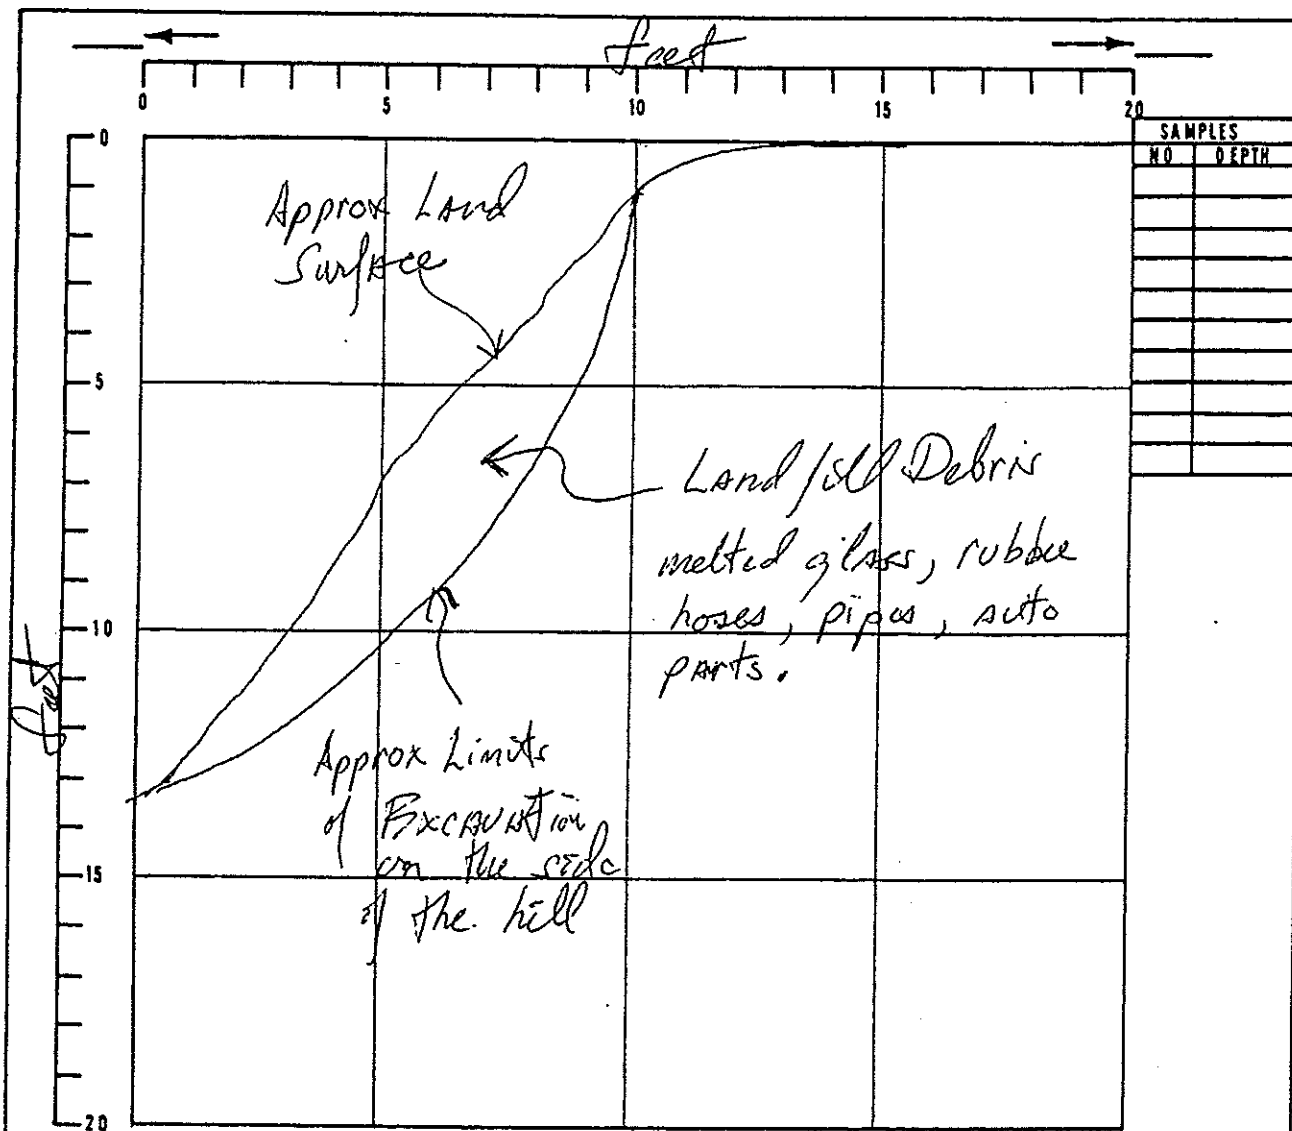 feet
0 5 10 15 20
SAMPLES
NO DEPTH
0
5
10
15
20
feet
Approx Land
Surface
Landfill Debris
melted glass, rubber
hoses, pipes, auto
parts.
Approx Limits
of Excavation
on the side
of the hill